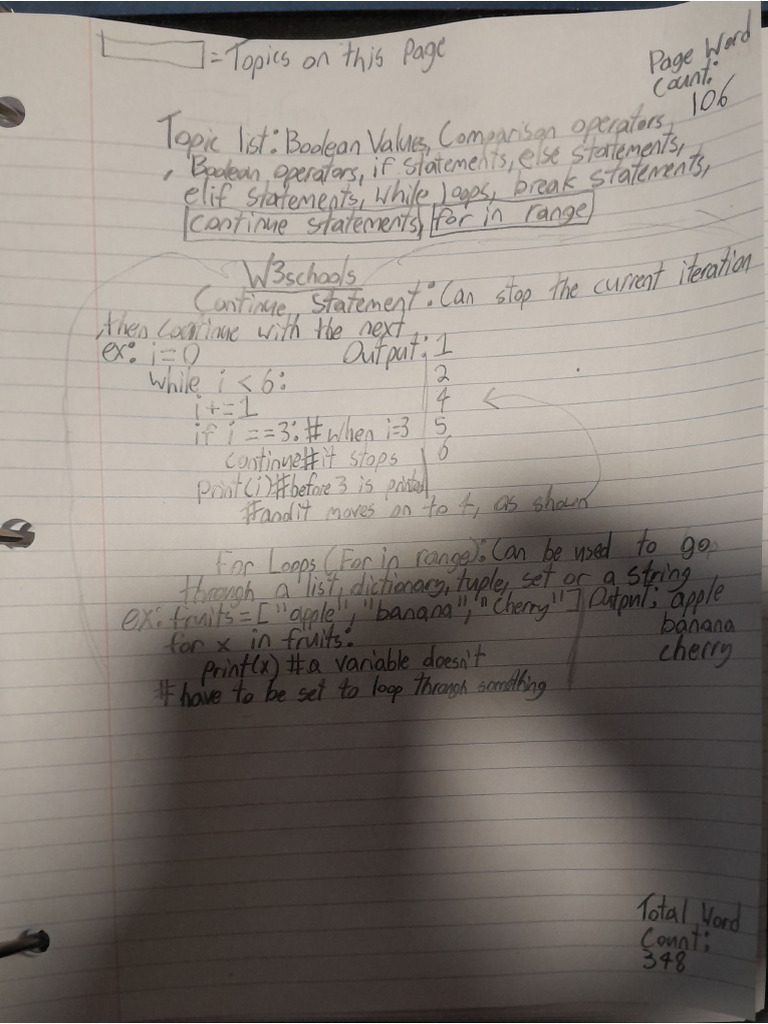 = Topics on this Page
Page Word
Count:
106
Topic list: Boolean Values, Comparison operators,
, Boolean operators, if statements, else statements,
elif statements, while loops, break statements,
continue statements, for in range
W3schools
Continue Statement: Can stop the current iteration
, then continue with the next
ex: i=0 Output: 1
while i < 6: 2
i+=1 4
if i ==3: # when i=3 5
continue #it stops 6
Print(i) #before 3 is printed
#and it moves on to 4, as shown
For Loops (For in range): Can be used to go
through a list, dictionary, tuple, set or a string
ex: fruits = ["apple", "banana", "cherry"] Output: apple
for x in fruits: banana
print(x) #a variable doesn't cherry
# have to be set to loop through something
Total Word
Count:
348